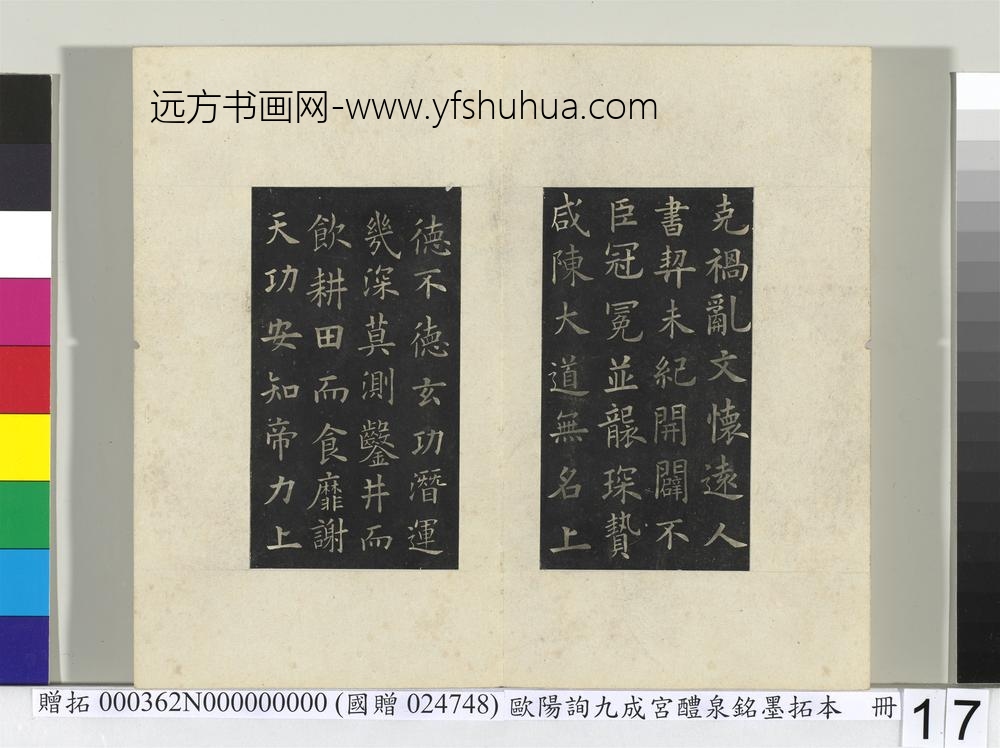 远方书画网-www.yfshuhua.com
克禍亂文懷遠人
書契未紀開闢不
臣冠冕並襲琛贄
咸陳大道無名上
德不德玄功潛運
幾深莫測鑿井而
飲耕田而食靡謝
天功安知帝力上
贈拓 000362N000000000 (國贈 024748) 歐陽詢九成宮醴泉銘墨拓本 冊 17